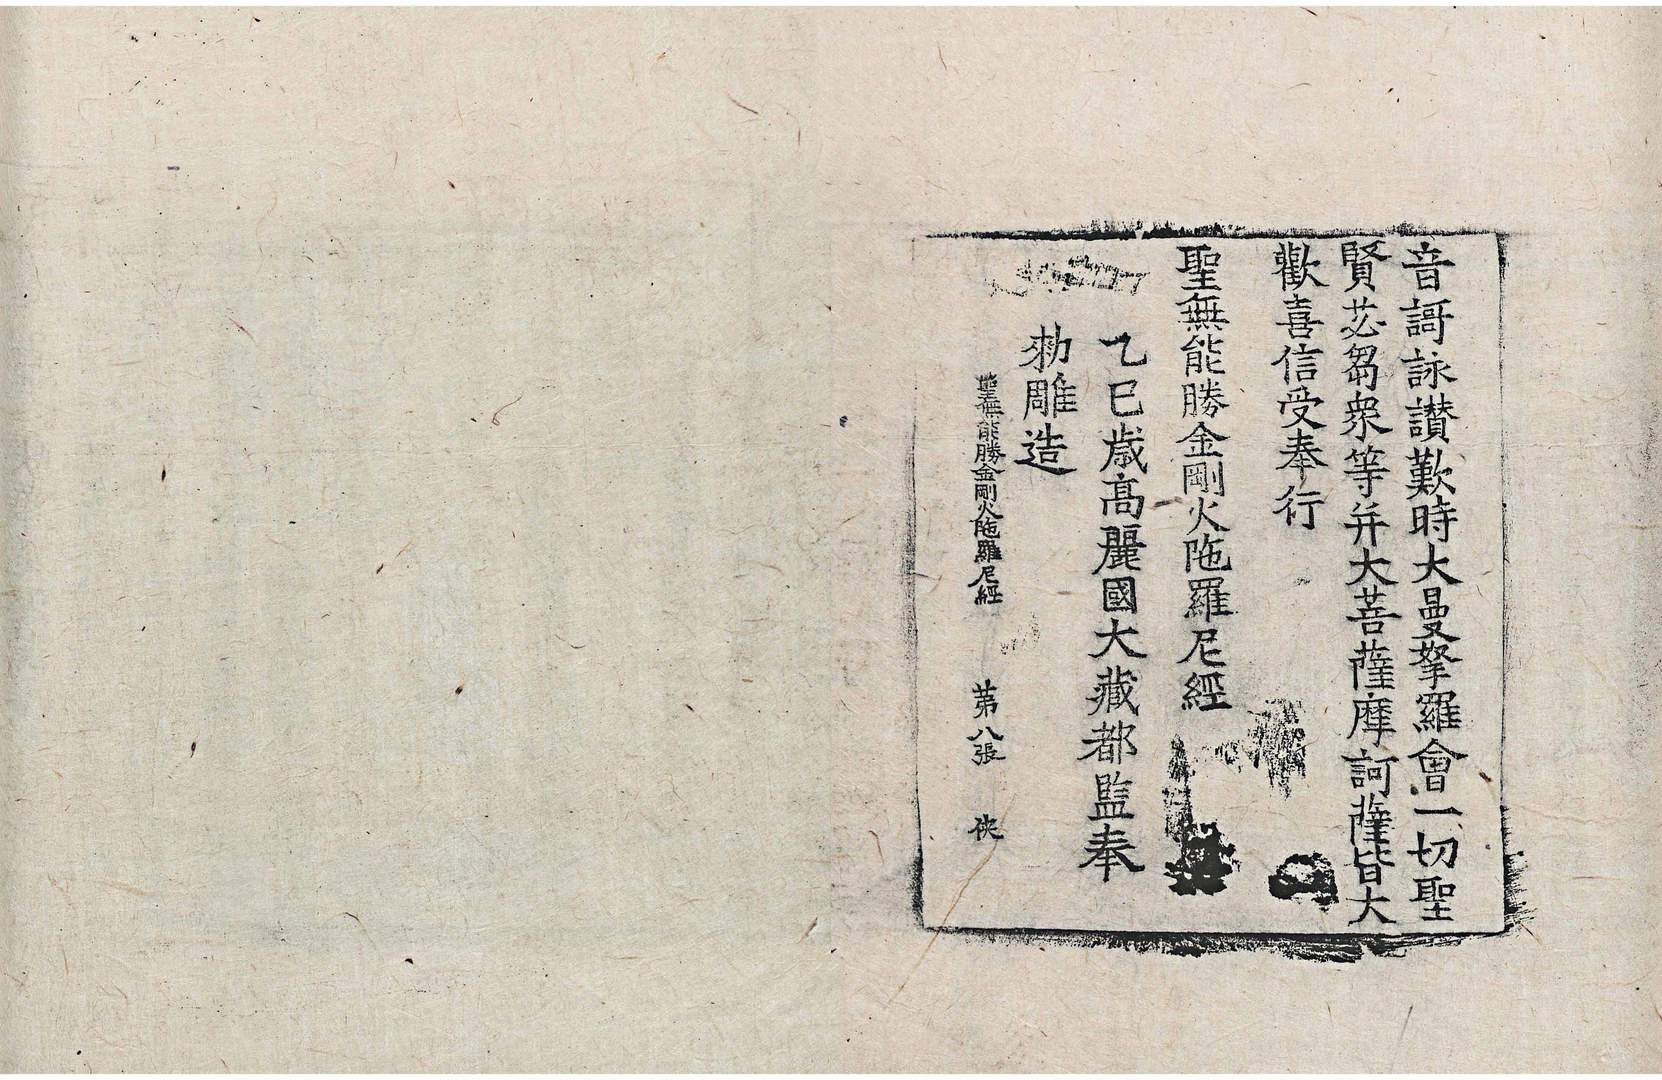 音謌詠讃歎時大曼拏羅會一切聖
賢苾芻衆等并大菩薩摩訶薩皆大
歡喜信受奉行
聖無能勝金剛火陁羅尼經
乙巳歲高麗國大藏都監奉
勑雕造
聖無能勝金剛火陁羅尼經 苐八張 俠